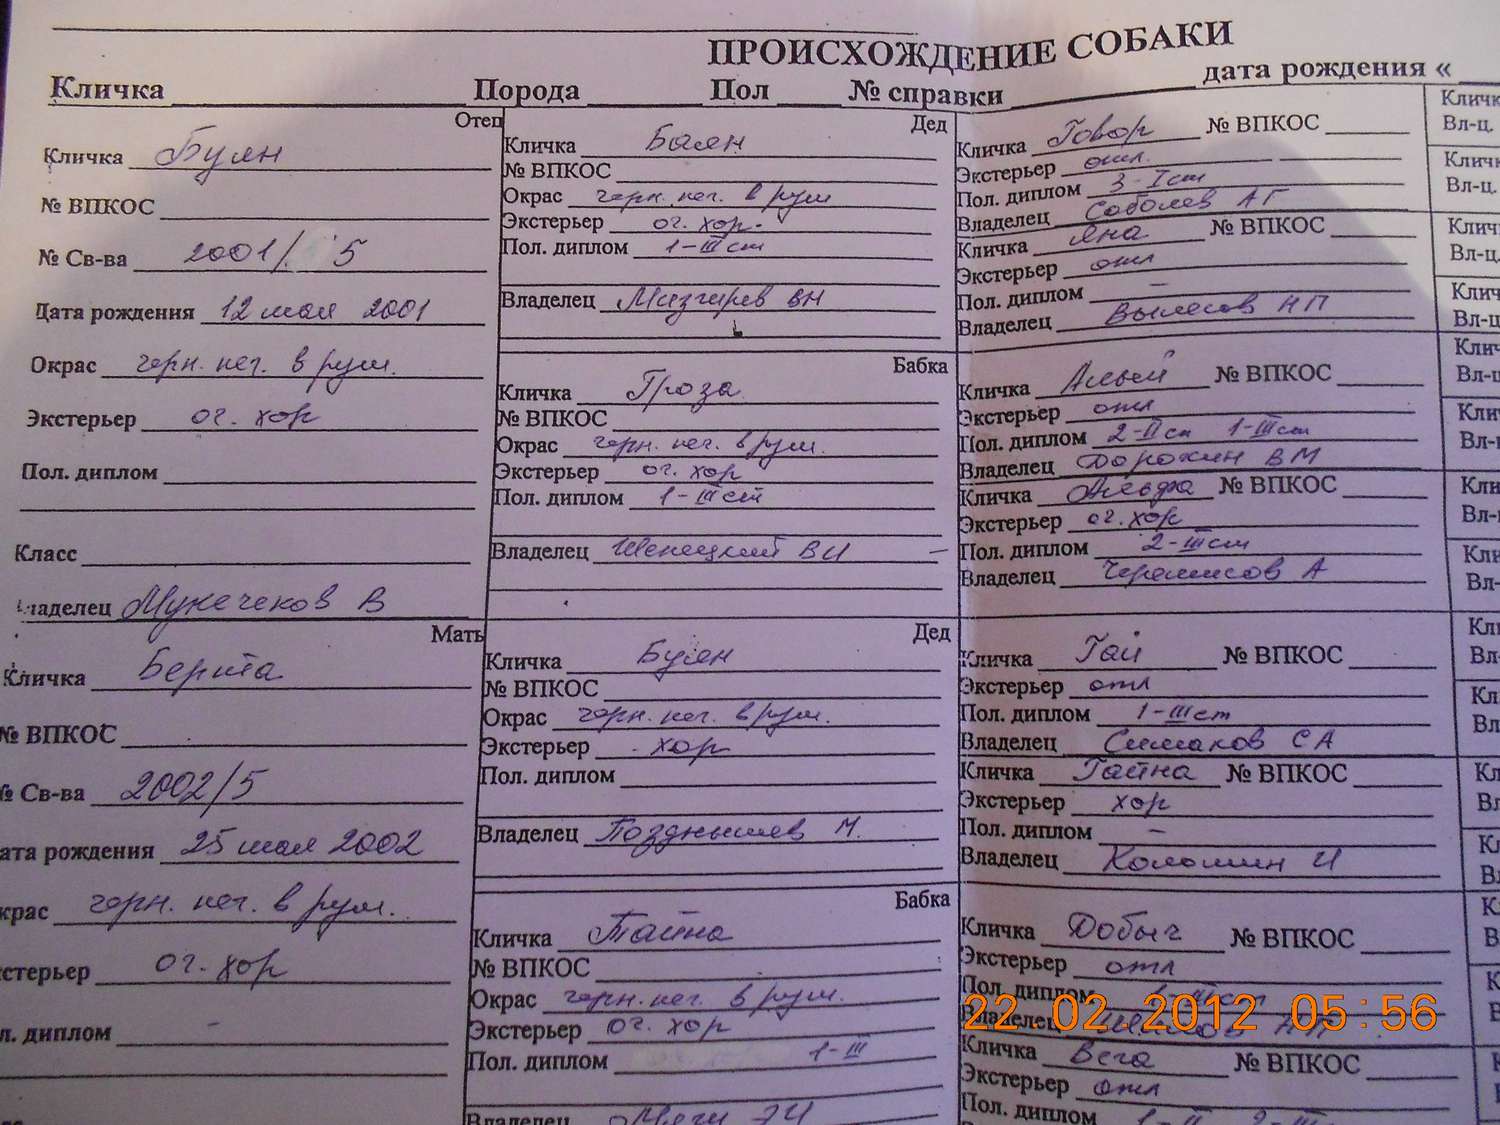 ПРОИСХОЖДЕНИЕ СОБАКИ
Кличка Порода Пол № справки дата рождения «
Отец
Кличка Буян
№ ВПКОС
№ Св-ва 2001/ 5
Дата рождения 12 мая 2001
Окрас черн. пег. в рум.
Экстерьер оч. хор
Пол. диплом
Класс
владелец
Мать
Кличка Берта
№ ВПКОС
№ Св-ва 2002/5
ата рождения 25 мая 2002
крас черн. пег. в рум.
стерьер оч. хор
л. диплом -
Дед
Кличка Баян
№ ВПКОС
Окрас черн. пег. в рум
Экстерьер оч. хор.
Пол. диплом 1-III ст
Владелец Мазгирев ВН
Бабка
Кличка Гроза
№ ВПКОС
Окрас черн. пег. в рум.
Экстерьер оч. хор
Пол. диплом 1-III ст
Владелец ВИ
Дед
Кличка Буян
№ ВПКОС
Окрас черн. пег. в рум.
Экстерьер хор
Пол. диплом
Владелец Позднышев М.
Бабка
Кличка Тайна
№ ВПКОС
Окрас черн. пег. в рум.
Экстерьер оч. хор
Пол. диплом 1-III
Владелец
Кличка Говор № ВПКОС
Экстерьер отл.
Пол. диплом 3-I ст
Владелец Соболев АГ
Кличка Яна № ВПКОС
Экстерьер отл
Пол. диплом -
Владелец НП
Кличка Алый № ВПКОС
Экстерьер отл
Пол. диплом 2-II ст 1-III ст
Владелец Дорохин ВМ
Кличка Альфа № ВПКОС
Экстерьер оч. хор
Пол. диплом 2-III ст
Владелец Черемисов А
Кличка Гай № ВПКОС
Экстерьер отл
Пол. диплом 1-III ст
Владелец Симаков СА
Кличка Тайна № ВПКОС
Экстерьер хор
Пол. диплом -
Владелец Коломин И
Кличка Добыч № ВПКОС
Экстерьер отл
Пол. диплом
Владелец
Кличка Вега № ВПКОС
Экстерьер отл
Пол. диплом
Кличк
Вл-ц.
Кличк
Вл-ц.
Клич
Вл-ц.
Клич
Вл-ц
Клич
Вл-ц
Кли
Вл-
Кли
Вл-
Кли
Вл-
Кли
Вл-
Кл
Вл
Кл
Вл
Кл
Вл
К
В
К
В
22 02 2012 05:56